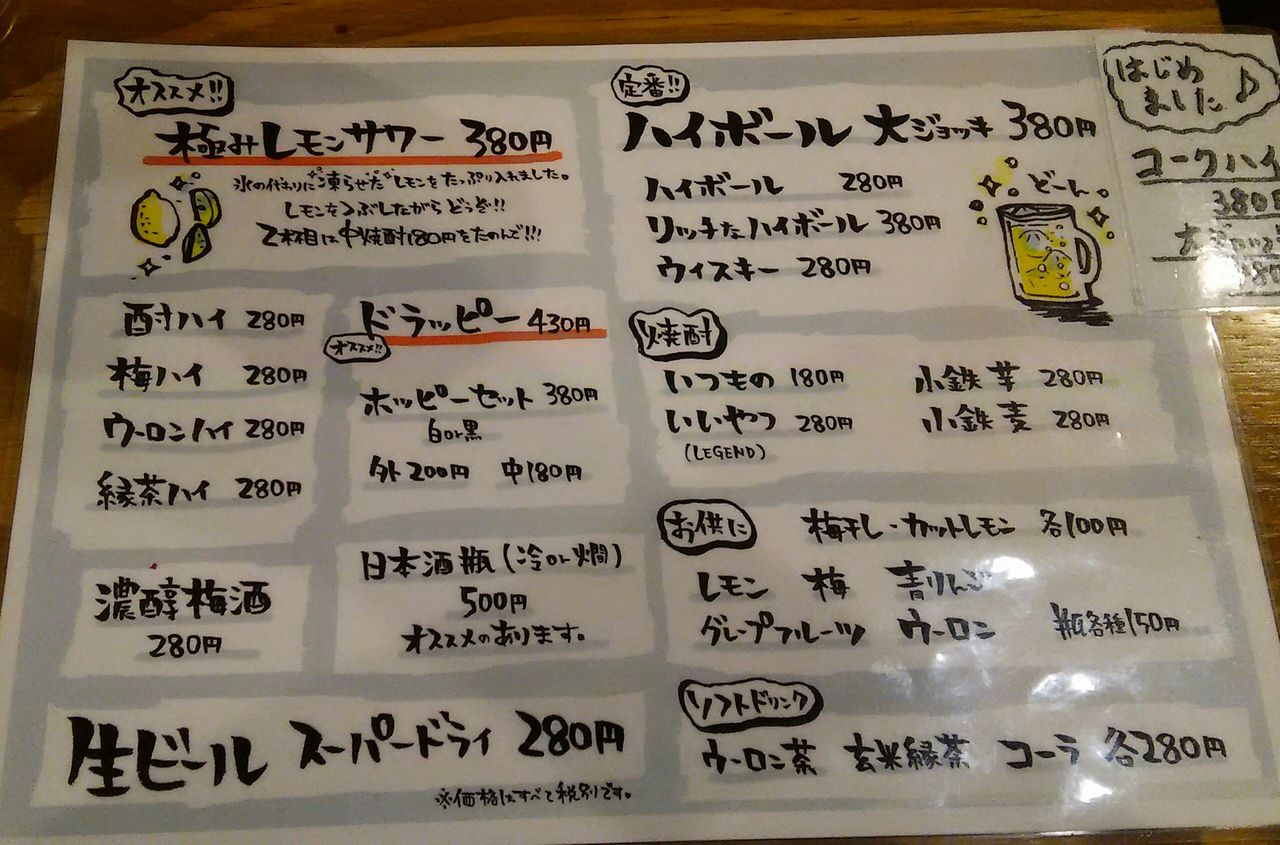 オススメ!!
極みレモンサワー 380円
氷の代わりに凍らせたレモンをたっぷり入れました。
レモンをつぶしながらどうぞ!!
2杯目は中焼酎180円をたのんで!!!
酎ハイ 280円
梅ハイ 280円
ウーロンハイ 280円
緑茶ハイ 280円
ドラッピー 430円
オススメ!!
ホッピーセット 380円
白or黒
外200円 中180円
濃醇梅酒
280円
日本酒瓶(冷or燗)
500円
オススメのあります。
生ビール スーパードライ 280円
※価格はすべて税別です。
定番!!
ハイボール 大ジョッキ 380円
ハイボール 280円
リッチなハイボール 380円
ウィスキー 280円
どーん。
はじめ
ました♪
コークハイ
380円
大ジョッ
焼酎
いつもの 180円 小鉄芋 280円
いいやつ 280円 小鉄麦 280円
(LEGEND)
お供に 梅干し・カットレモン 各100円
レモン 梅 青りんご
グレープフルーツ ウーロン 瓶各種150円
ソフトドリンク
ウーロン茶 玄米緑茶 コーラ 各280円